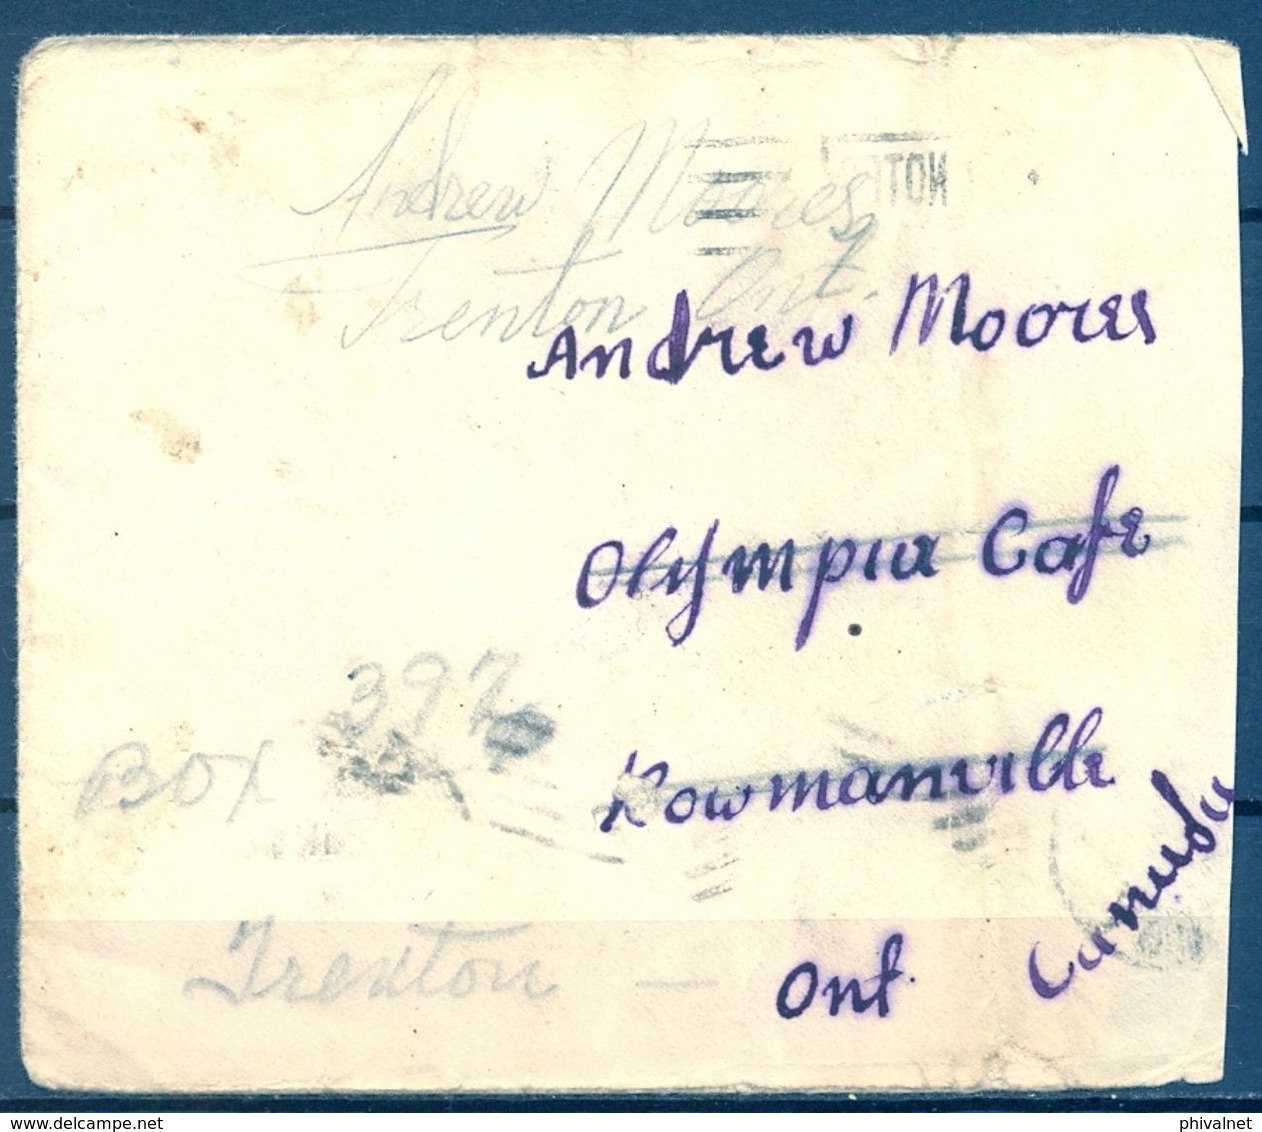 Andrew Moores,
Trenton Ont.
Andrew Moores
Olympia Cafe
397
Box
Bowmanville
Trenton —
Ont.
Canada
www.delcampe.net
phivalnet